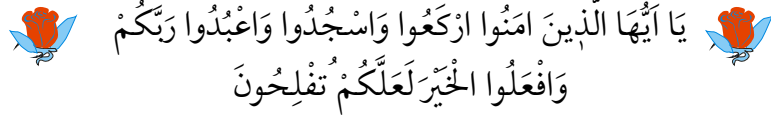 يَا اَيُّهَا الَّذٖينَ اٰمَنُوا ارْكَعُوا وَاسْجُدُوا وَاعْبُدُوا رَبَّكُمْ
وَافْعَلُوا الْخَيْرَ لَعَلَّكُمْ تُفْلِحُونَ